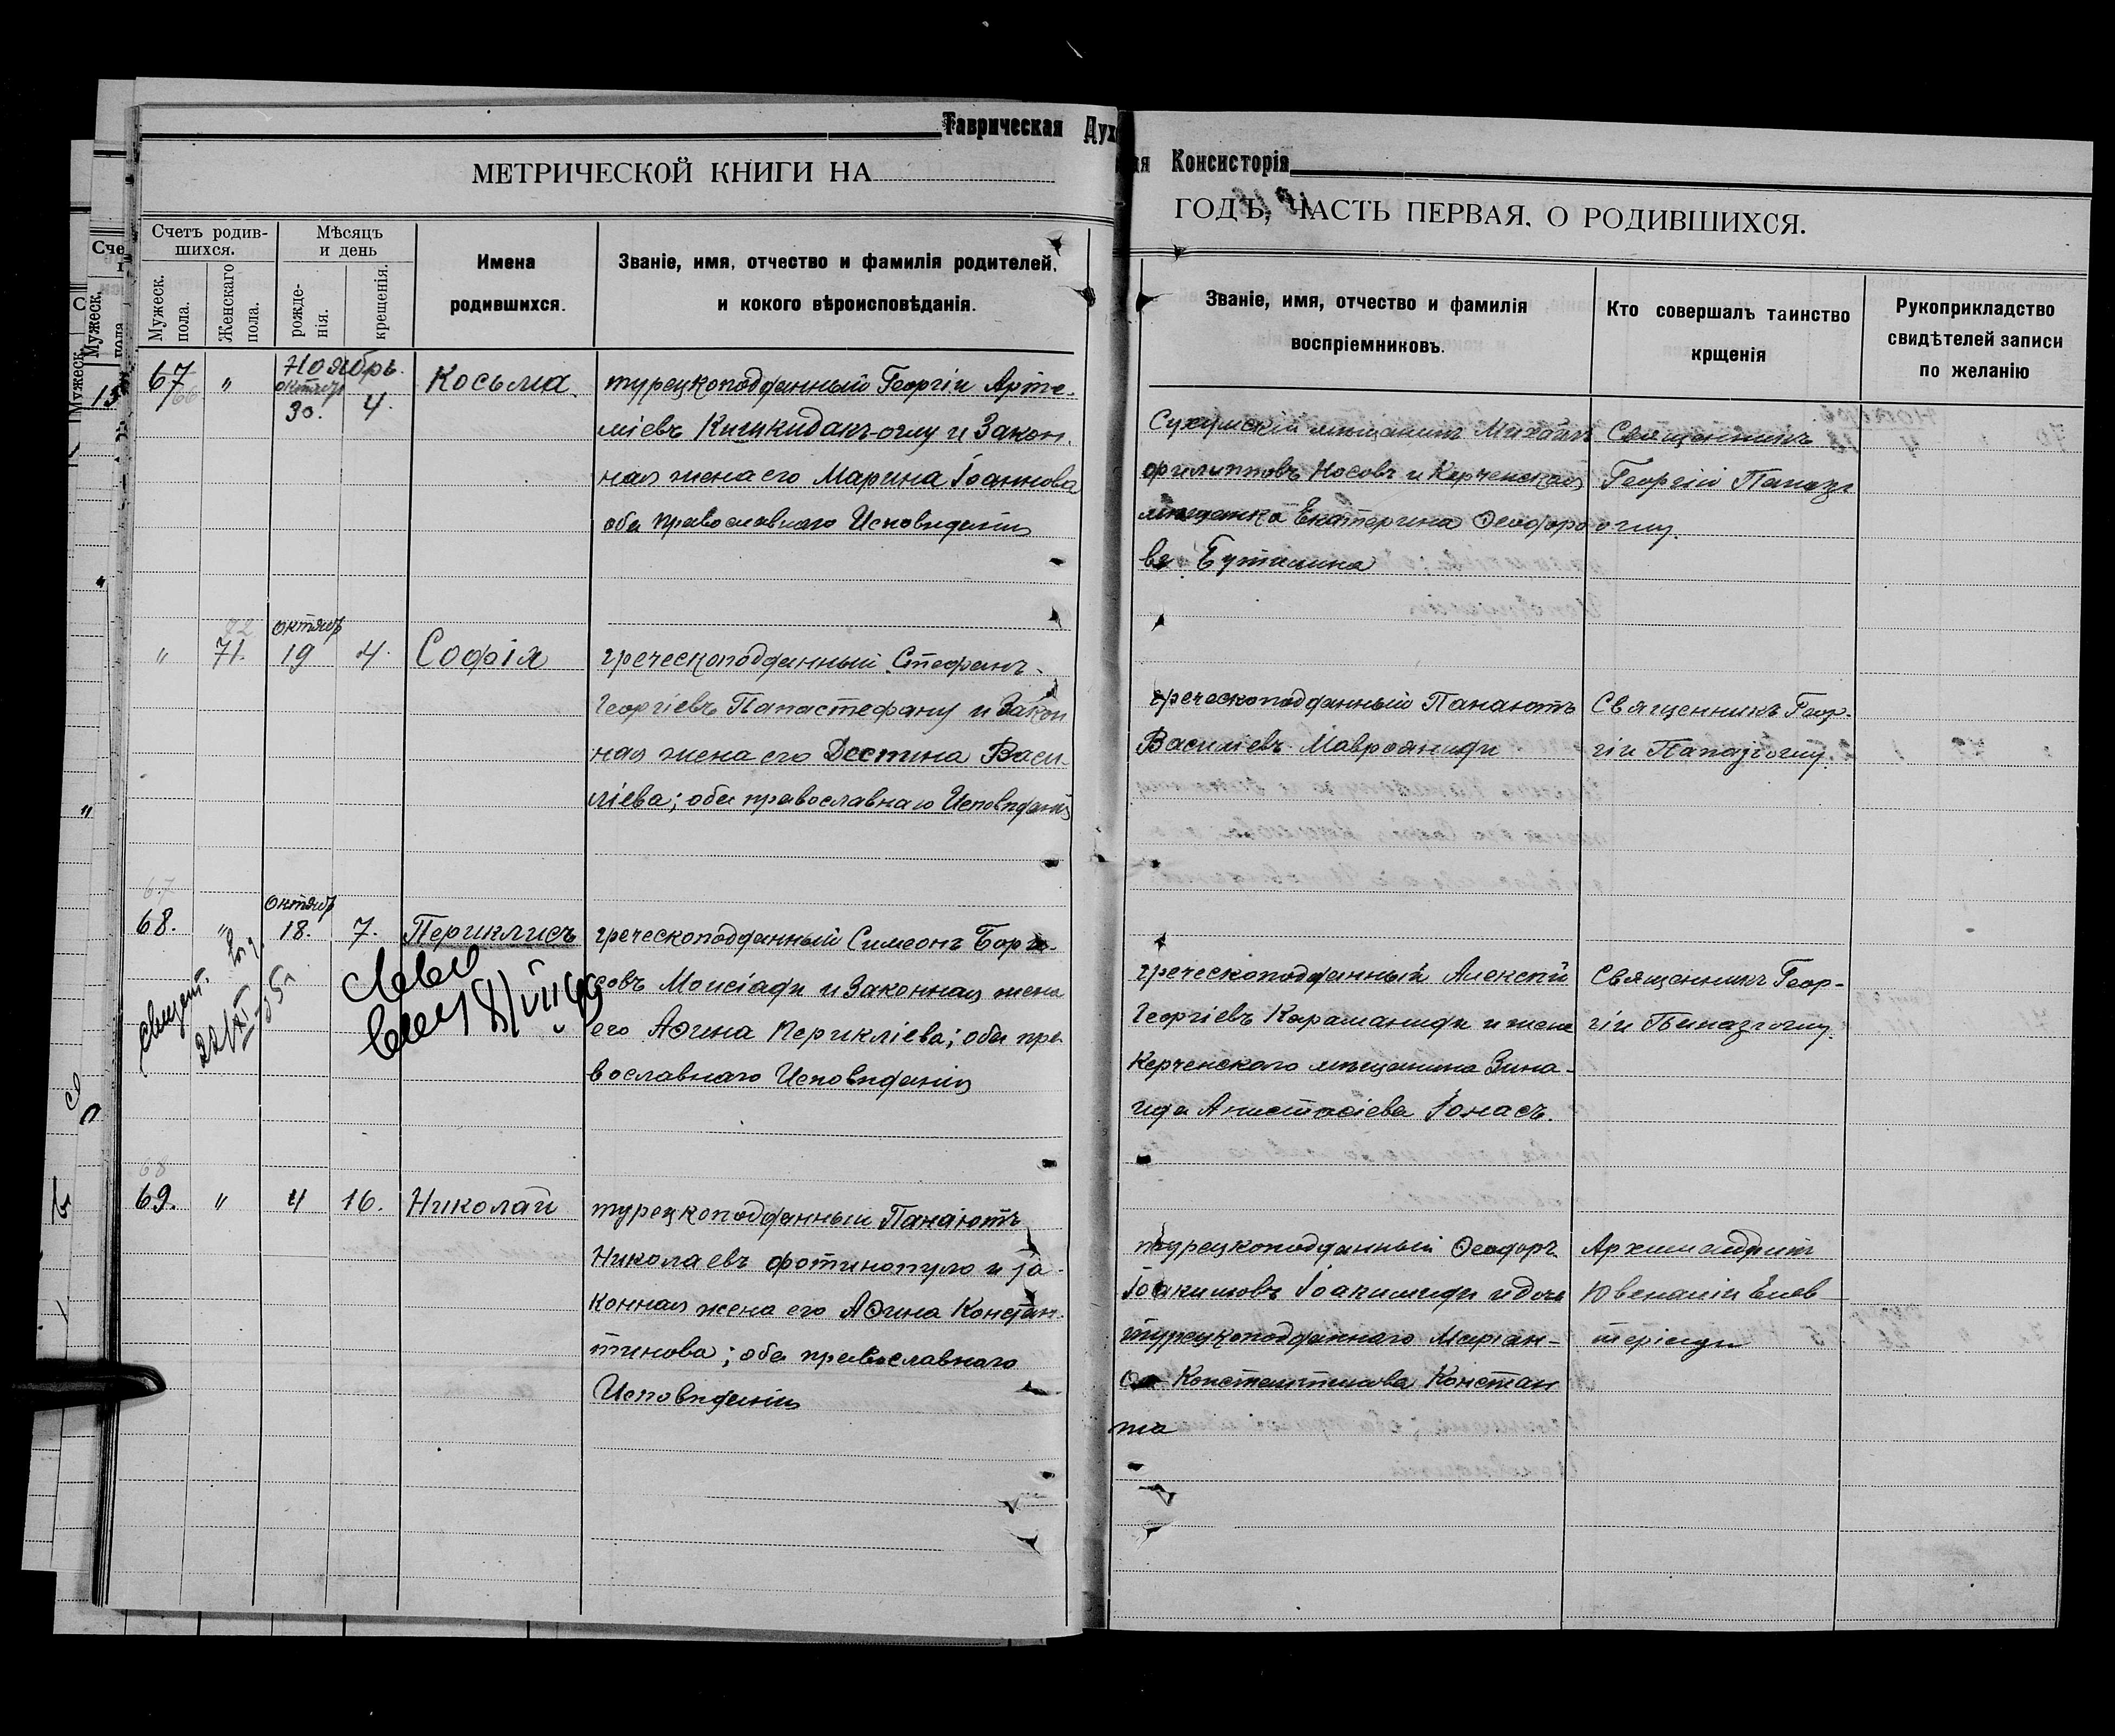 Таврическая Дух
ая Консисторія
МЕТРИЧЕСКОЙ КНИГИ НА
ГОДЪ, ЧАСТЬ ПЕРВАЯ, О РОДИВШИХСЯ.
Счетъ родив-
шихся.
Мужеск.
пола.
Женскаго
пола.
Мѣсяцъ
и день
рожде-
нія.
крещенія.
Имена
родившихся.
Званіе, имя, отчество и фамилія родителей,
и кокого вѣроисповѣданія.
Званіе, имя, отчество и фамилія
воспріемниковъ.
Кто совершалъ таинство
крщенія
Рукоприкладство
свидѣтелей записи
по желанію
Ноябрь.
67 " октябр 30. 4. Косьма.
турецкоподданный Георгіи Арте-
міевъ и Закон.
ная жена его Марина Іоаннова
оба православнаго Исповѣданія
Сухумскій мѣщанинъ Михаилъ
филипповъ Носовъ и Керченская
мѣщанка Екатерина Ѳеодоро
ва
Священникъ
Георгій Папазъ
оглу.
72
" 71. октябр 19 4. Софія
греческоподданный Стефанъ
Георгіевъ Папастефану и Закон
ная жена его Деспина Васи-
ліева; оба православнаго Исповѣданія
греческоподданный Панаіотъ
Василіевъ Мавроаниди
Священникъ Геор-
гіи Папазъоглу.
67
68. " октябр 18. 7. Периклисъ
греческоподданный Симеонъ Борис-
совъ Моисіади и Законная жена
его Аѳина Перикліева; оба пра
вославнаго Исповѣданія
греческоподданный Алексѣй
Георгіевъ Караманиди и жена
Керченского мѣщанина Зина-
ида Анастасіева Іонасъ.
Священникъ Геор-
гіи Папазъоглу.
68
69. " 4 16. Николай
турецкоподданныи Панаіотъ
Николаевъ фотинопуло и за-
конная жена его Аѳина Констан-
тинова; оба православнаго
Исповѣданія
турецкоподданный Ѳеодоръ
Іоакимовъ Іоакимиди и дочь
турецкоподданного Маріан-
Константинова Констан
та
Архимандритъ
Ювеналіи Елев-
теріади